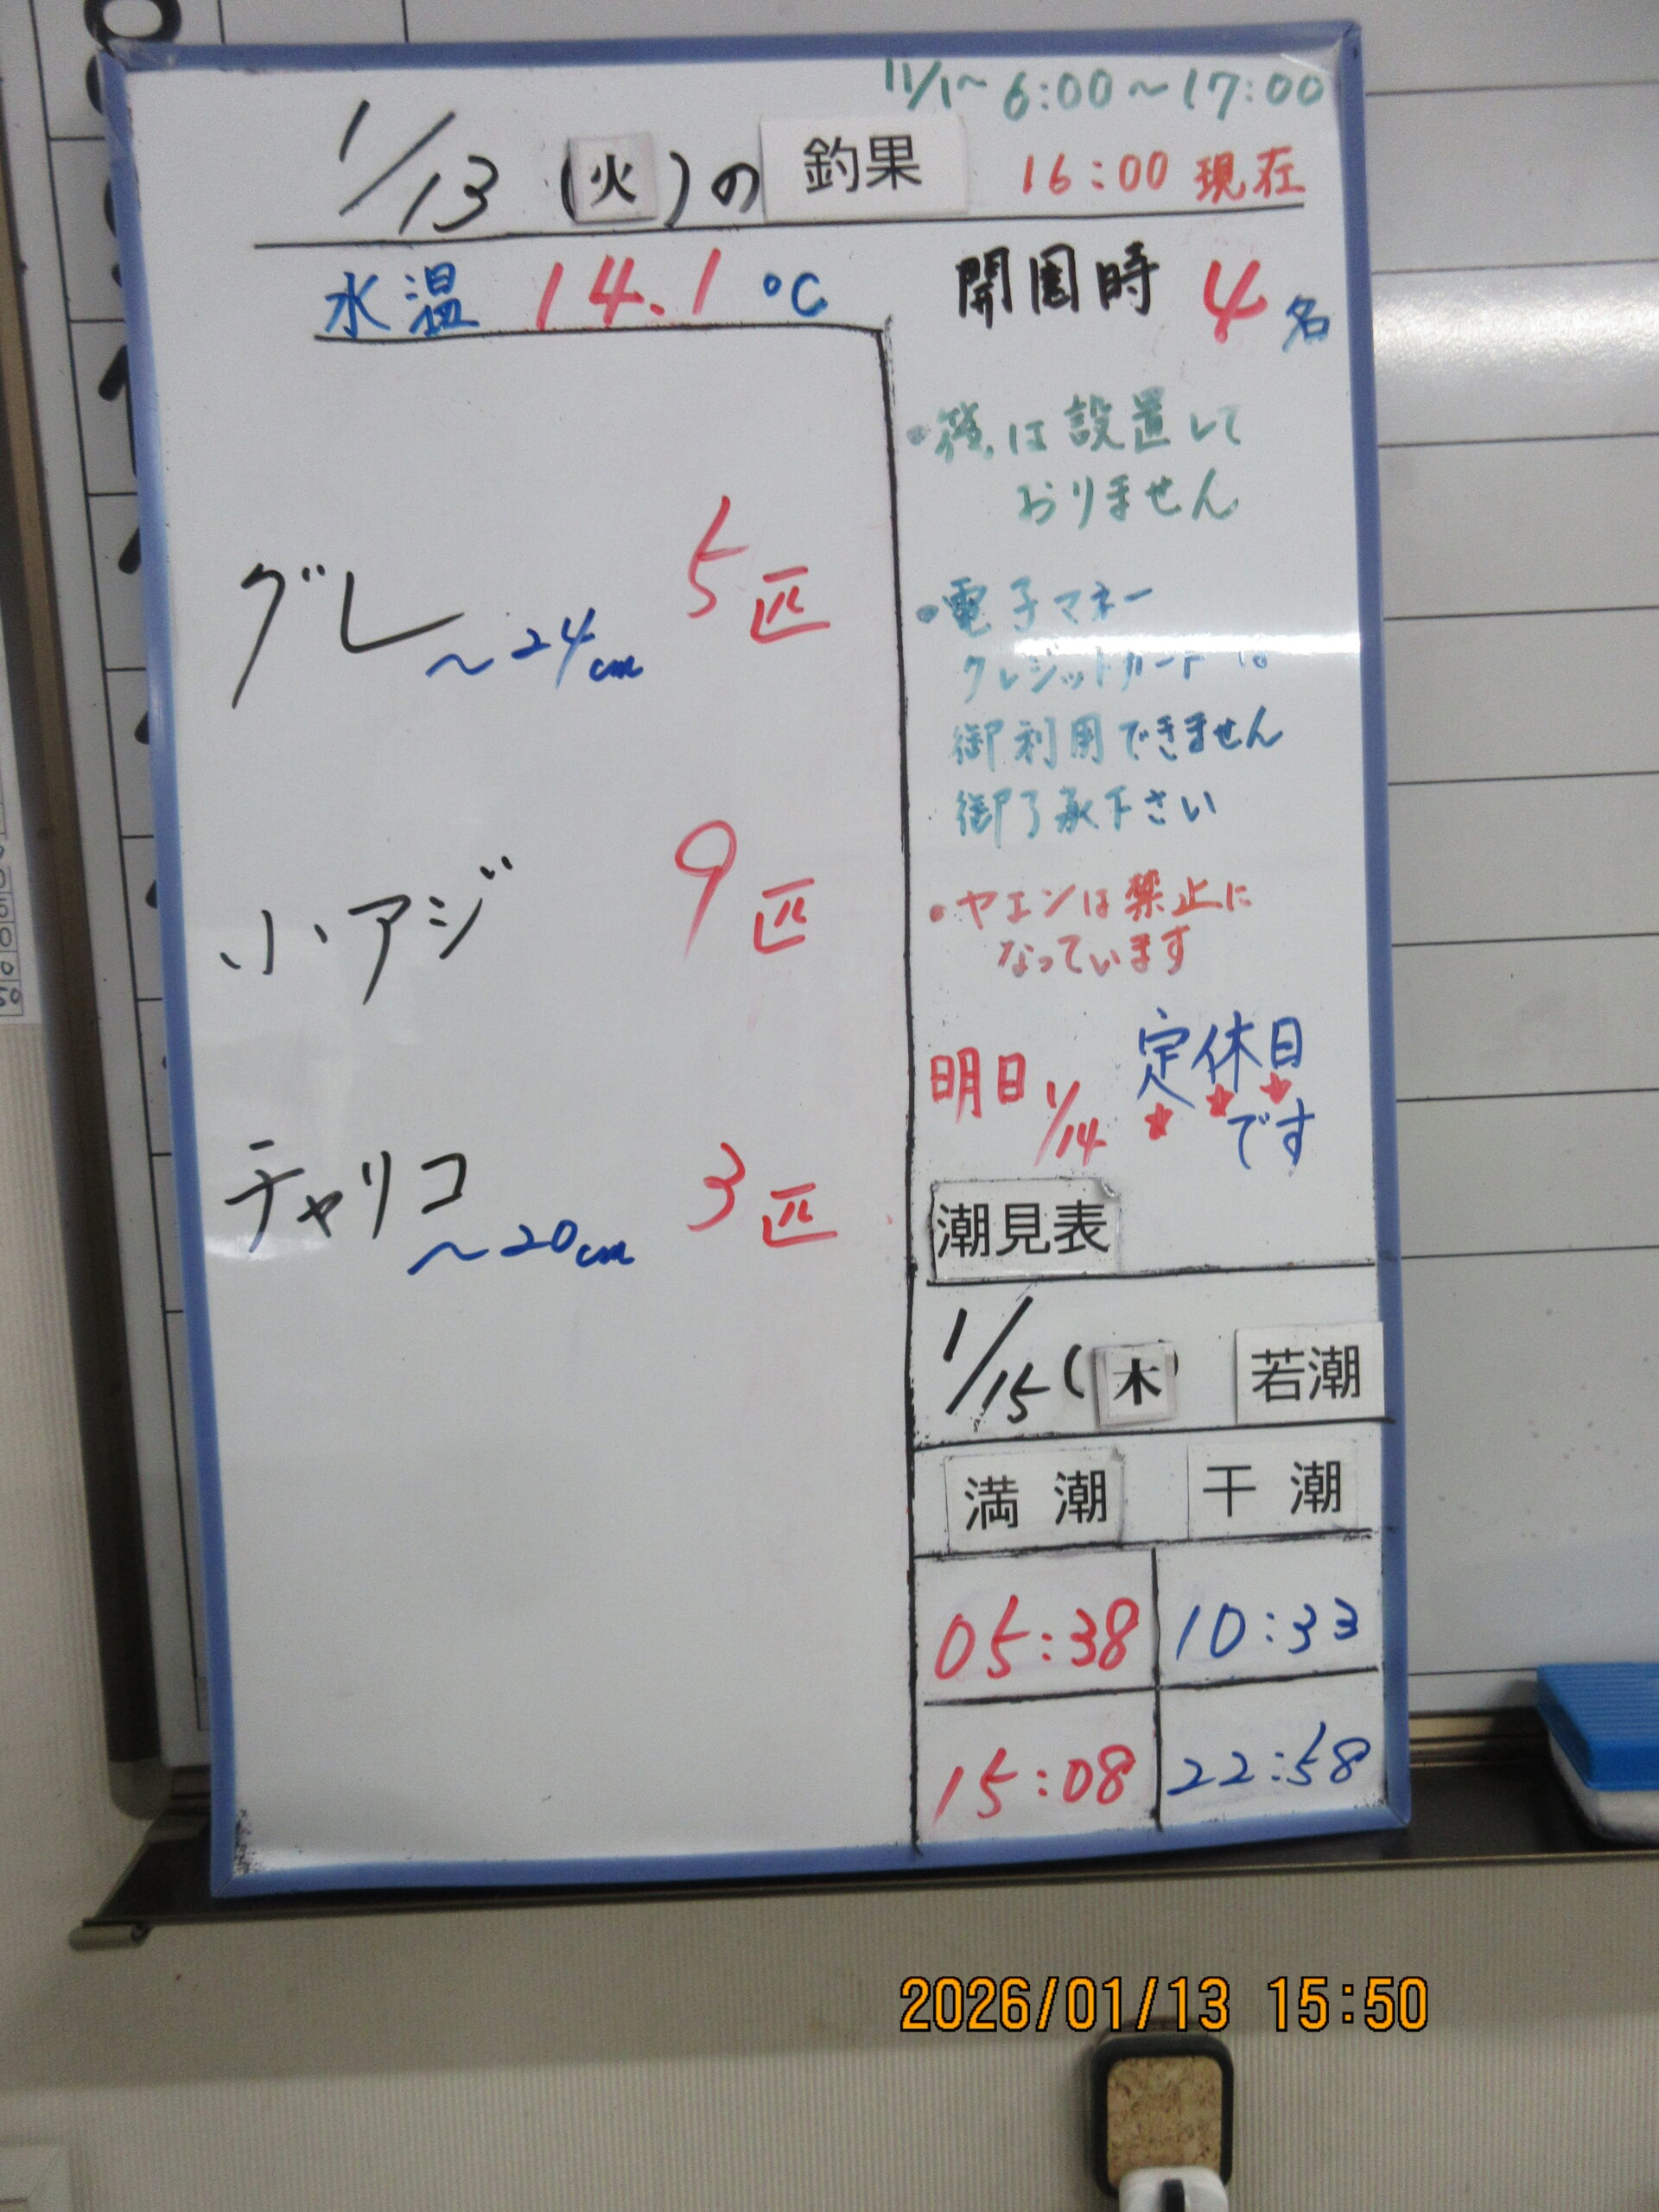 11/1~ 6:00~17:00
1/13 (火)の 釣果 16:00 現在
水温 14.1 ℃
開園時 4名
グレ ~24cm 5匹
小アジ 9匹
チャリコ ~20cm 3匹
・筏は設置して
おりません
・電子マネー
クレジットカードは
御利用できません
御了承下さい
・ヤエンは禁止に
なっています
明日 1/14 定休日
です
潮見表
1/15 (木) 若潮
満潮 干潮
05:38 10:33
15:08 22:58
2026/01/13 15:50